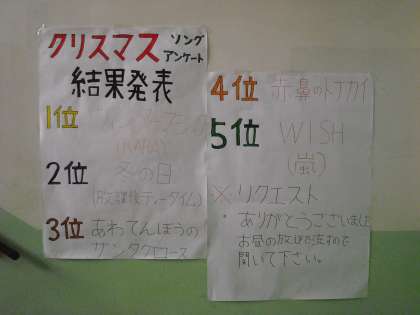 クリスマス ソング
アンケート
結果発表
1位
(KARA)
2位 冬の日
(放課後ティータイム)
3位 あわてんぼうの
サンタクロース
4位 赤鼻のトナカイ
5位 WISH
(嵐)
※リクエスト
・ありがとうございました
お昼の放送で流すので
聞いて下さい。